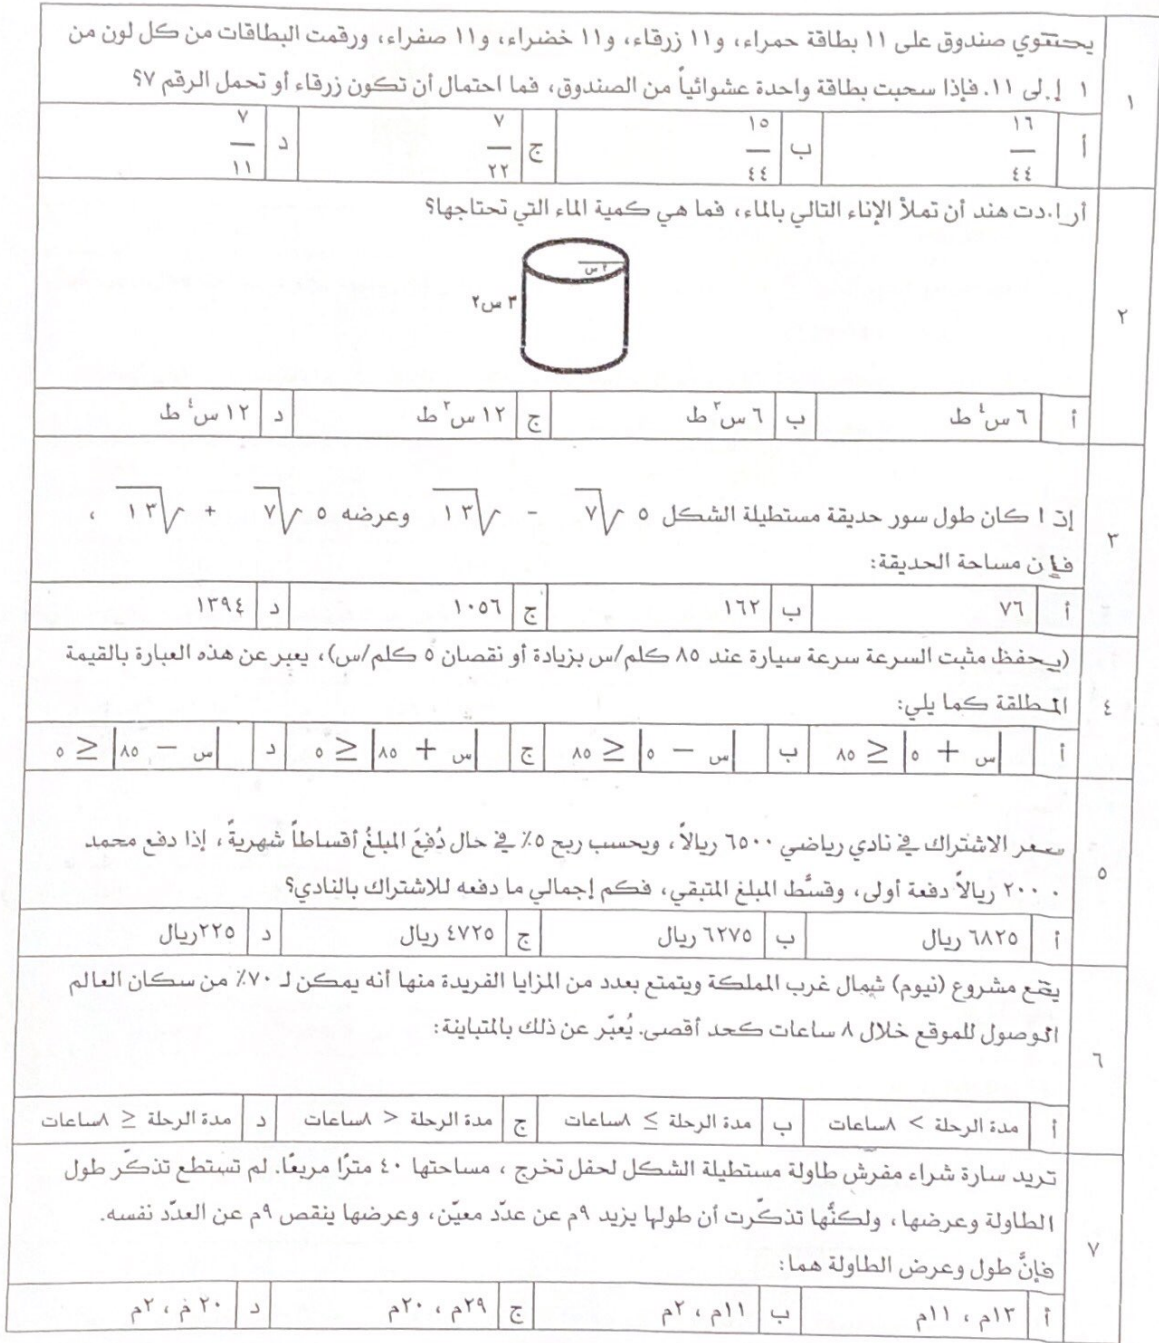 ١
يحتتوي صندوق على ١١ بطاقة حمراء، و١١ زرقاء، و١١ خضراء، و١١ صفراء، ورقمت البطاقات من كل لون من
١ إلى ١١. فإذا سحبت بطاقة واحدة عشوائياً من الصندوق، فما احتمال أن تكون زرقاء أو تحمل الرقم ٧؟
أ ١٦/٤٤ ب ١٥/٤٤ ج ٧/٢٢ د ٧/١١
٢
أرا.دت هند أن تملأ الإناء التالي بالماء، فما هي كمية الماء التي تحتاجها؟
٢ س
٣ س٢
أ ٦ س⁴ ط ب ٦ س³ ط ج ١٢ س³ ط د ١٢ س⁴ ط
٣
إذا كان طول سور حديقة مستطيلة الشكل ٥ √٧ - √١٣ وعرضه ٥ √٧ + √١٣ ،
فإن مساحة الحديقة:
أ ٧٦ ب ١٦٢ ج ١٠٥٦ د ١٣٩٤
٤
(يحفظ مثبت السرعة سرعة سيارة عند ٨٥ كلم/س بزيادة أو نقصان ٥ كلم/س)، يعبر عن هذه العبارة بالقيمة
المطلقة كما يلي:
أ |س + ٥| ≥ ٨٥ ب |س − ٥| ≥ ٨٥ ج |س + ٨٥| ≥ ٥ د |س − ٨٥| ≥ ٥
٥
سعر الاشتراك في نادي رياضي ٦٥٠٠ ريالاً، ويحسب ربح ٥٪ في حال دُفِعَ المبلغُ أقساطاً شهريةً، إذا دفع محمد
٢٠٠٠ ريالاً دفعة أولى، وقسَّط المبلغ المتبقي، فكم إجمالي ما دفعه للاشتراك بالنادي؟
أ ٦٨٢٥ ريال ب ٦٢٧٥ ريال ج ٤٧٢٥ ريال د ٢٢٥ريال
٦
يقع مشروع (نيوم) شمال غرب المملكة ويتمتع بعدد من المزايا الفريدة منها أنه يمكن لـ ٧٠٪ من سكان العالم
الوصول للموقع خلال ٨ ساعات كحد أقصى. يُعبّر عن ذلك بالمتباينة:
أ مدة الرحلة > ٨ساعات ب مدة الرحلة ≥ ٨ساعات ج مدة الرحلة < ٨ساعات د مدة الرحلة ≤ ٨ساعات
٧
تريد سارة شراء مفرش طاولة مستطيلة الشكل لحفل تخرج ، مساحتها ٤٠ مترًا مربعًا. لم تستطع تذكّر طول
الطاولة وعرضها، ولكنَّها تذكّرت أن طولها يزيد ٩م عن عدّد معيّن، وعرضها ينقص ٩م عن العدّد نفسه.
فإنَّ طول وعرض الطاولة هما:
أ ١٣م ، ١١م ب ١١م ، ٢م ج ٢٩م ، ٢٠م د ٢٠ م ، ٢م